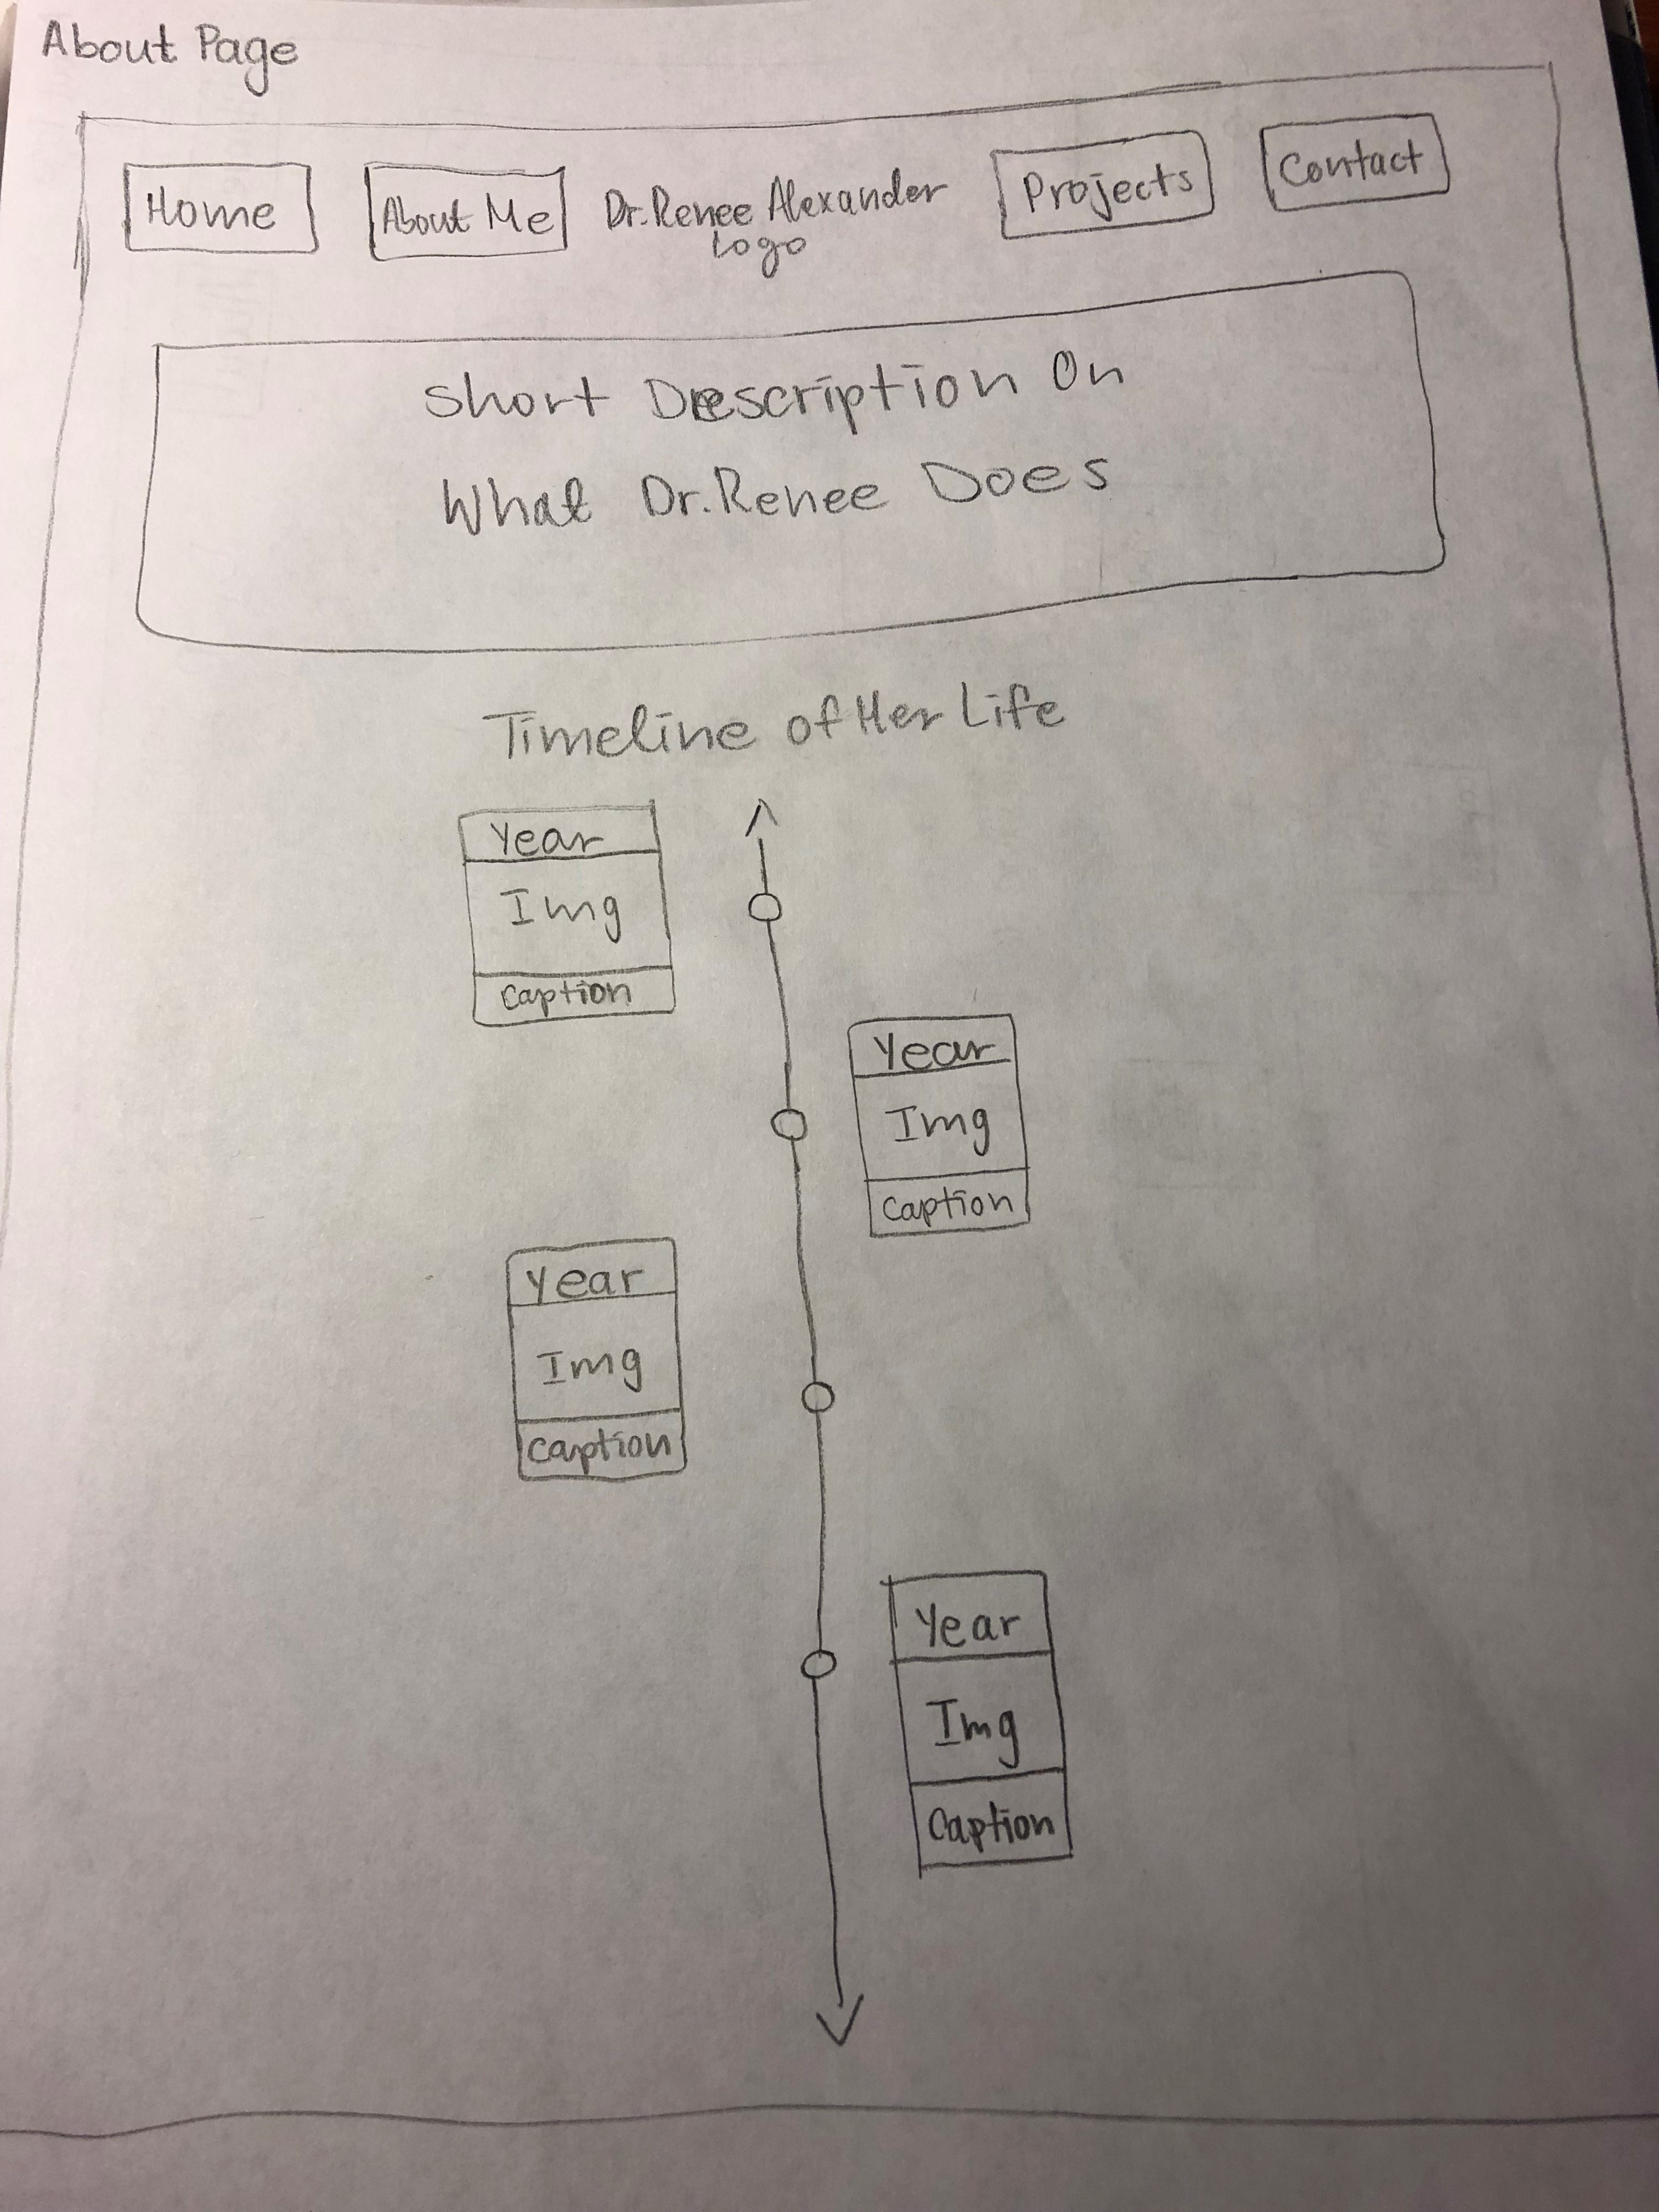 About Page
Home
About Me
Dr. Renee Alexander
Logo
Projects
Contact
Short Description On
What Dr. Renee Does
Timeline of Her Life
Year
Img
Caption
Year
Img
Caption
Year
Img
Caption
Year
Img
Caption